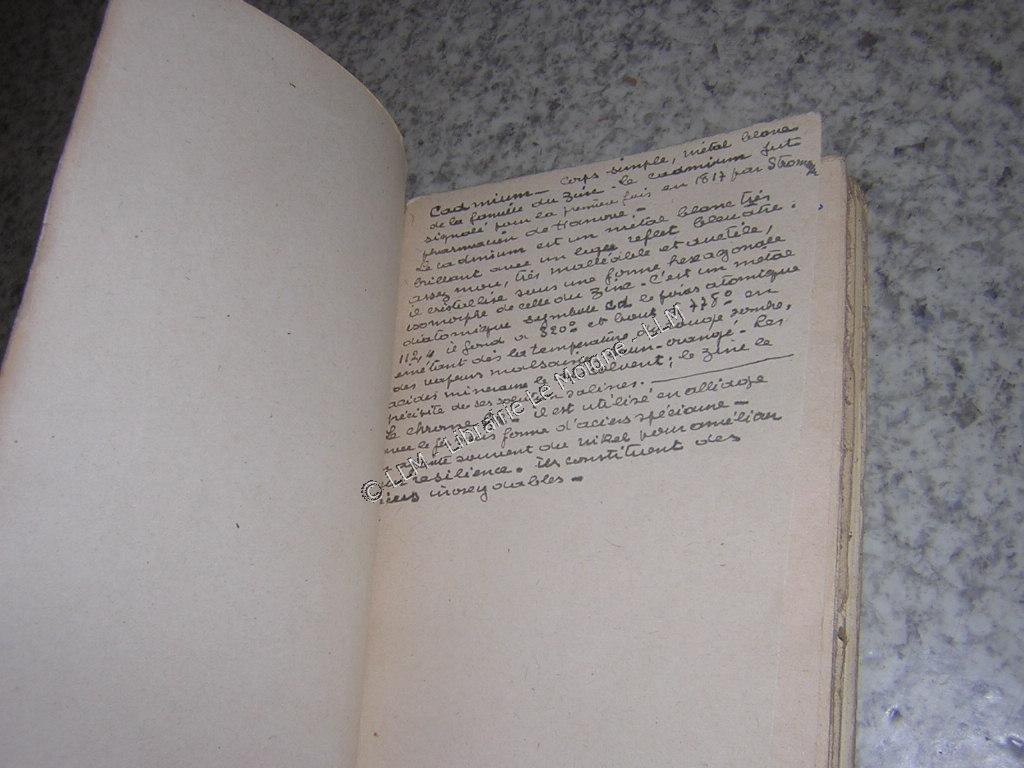 Cadmium - corps simple, métal blanc
de la famille du Zinc - le cadmium fut
signalé pour la première fois en 1817 par Stromey
pharmacien de Hanovre -
Le cadmium est un métal blanc très
brillant avec un léger reflet bleuâtre.
assez mou, très malléable et ductile,
il cristallise sous une forme hexagonale
isomorphe de celle du Zinc. C'est un métal
diatomique symbole Cd le poids atomique
112,4 il fond à 320° et bout à 778° en
émettant dès la température du rouge sombre,
des vapeurs malsaines brun-orangé. Les
acides minéraux le dissolvent; le Zinc le
précipite de ses solutions salines.
Le chrome il est utilisé en alliage
avec le fer sous forme d'aciers spéciaux -
souvent du nikel pour améliorer
résilience. ils constituent des
aciers inoxydables -
© LLM - Librairie Le Moigne - LLM